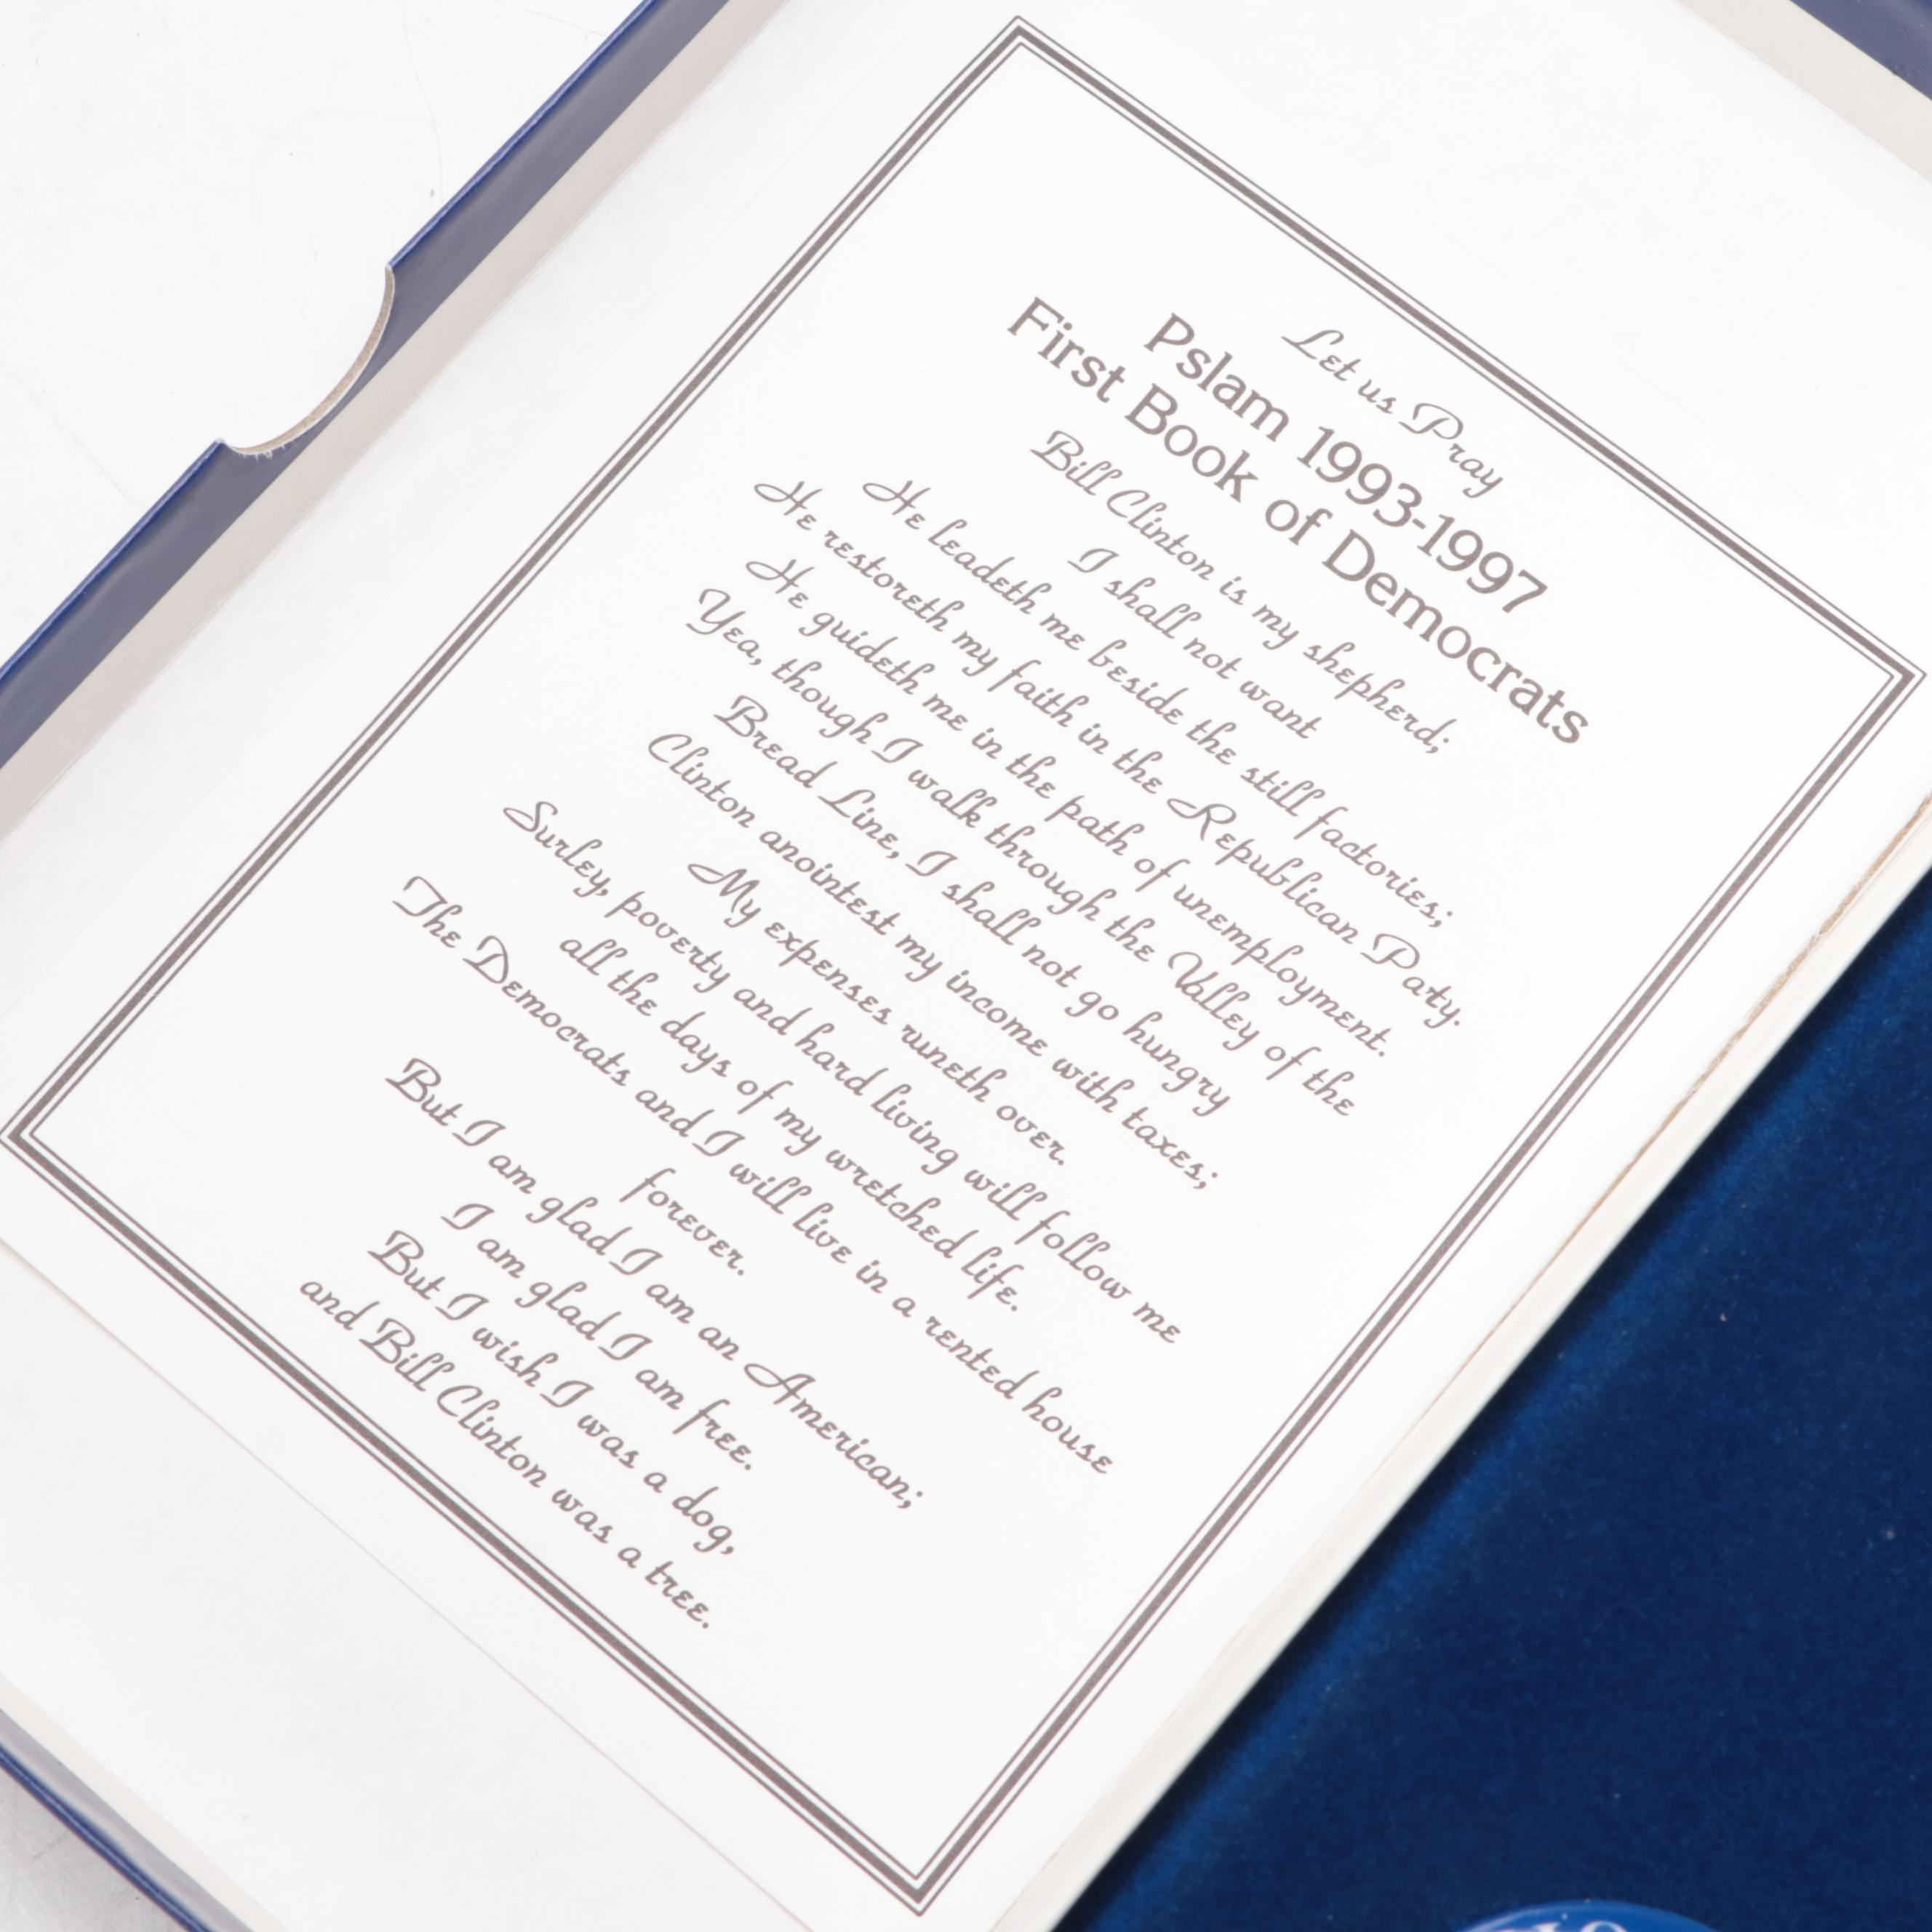 Let us Pray
Pslam 1993-1997
First Book of Democrats
Bill Clinton is my shepherd;
I shall not want
He leadeth me beside the still factories;
He restoreth my faith in the Republican Paty.
He guideth me in the path of unemployment.
Yea, though I walk through the Valley of the
Bread Line, I shall not go hungry
Clinton anointest my income with taxes;
My expenses runeth over.
Surley, poverty and hard living will follow me
all the days of my wretched life.
The Democrats and I will live in a rented house
forever.
But I am glad I am an American;
I am glad I am free.
But I wish I was a dog,
and Bill Clinton was a tree.